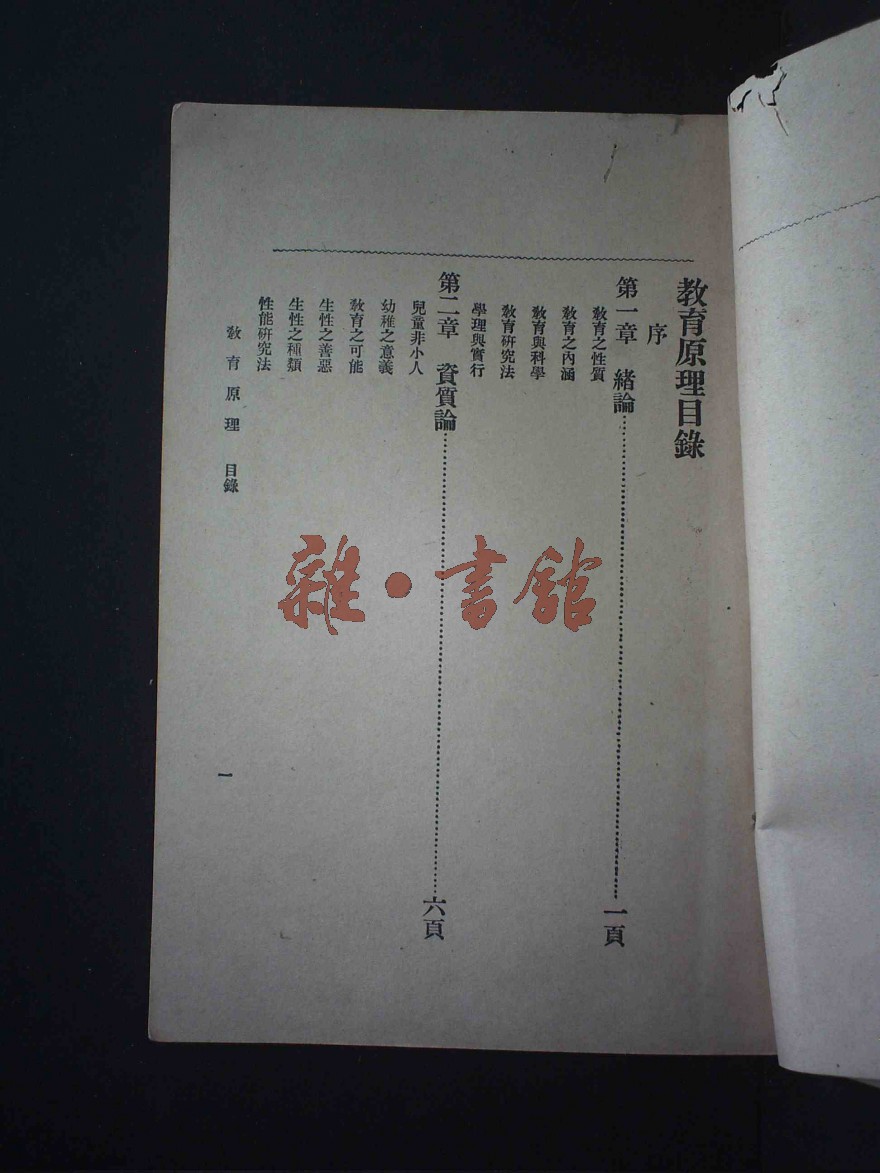 教育原理目錄
序
第一章　緒論……………………一頁
教育之性質
教育之內涵
教育與科學
教育研究法
學理與實行
第二章　資質論……………………六頁
兒童非小人
幼稚之意義
教育之可能
生性之善惡
生性之種類
性能研究法
教育原理　目錄
一
雜·書館